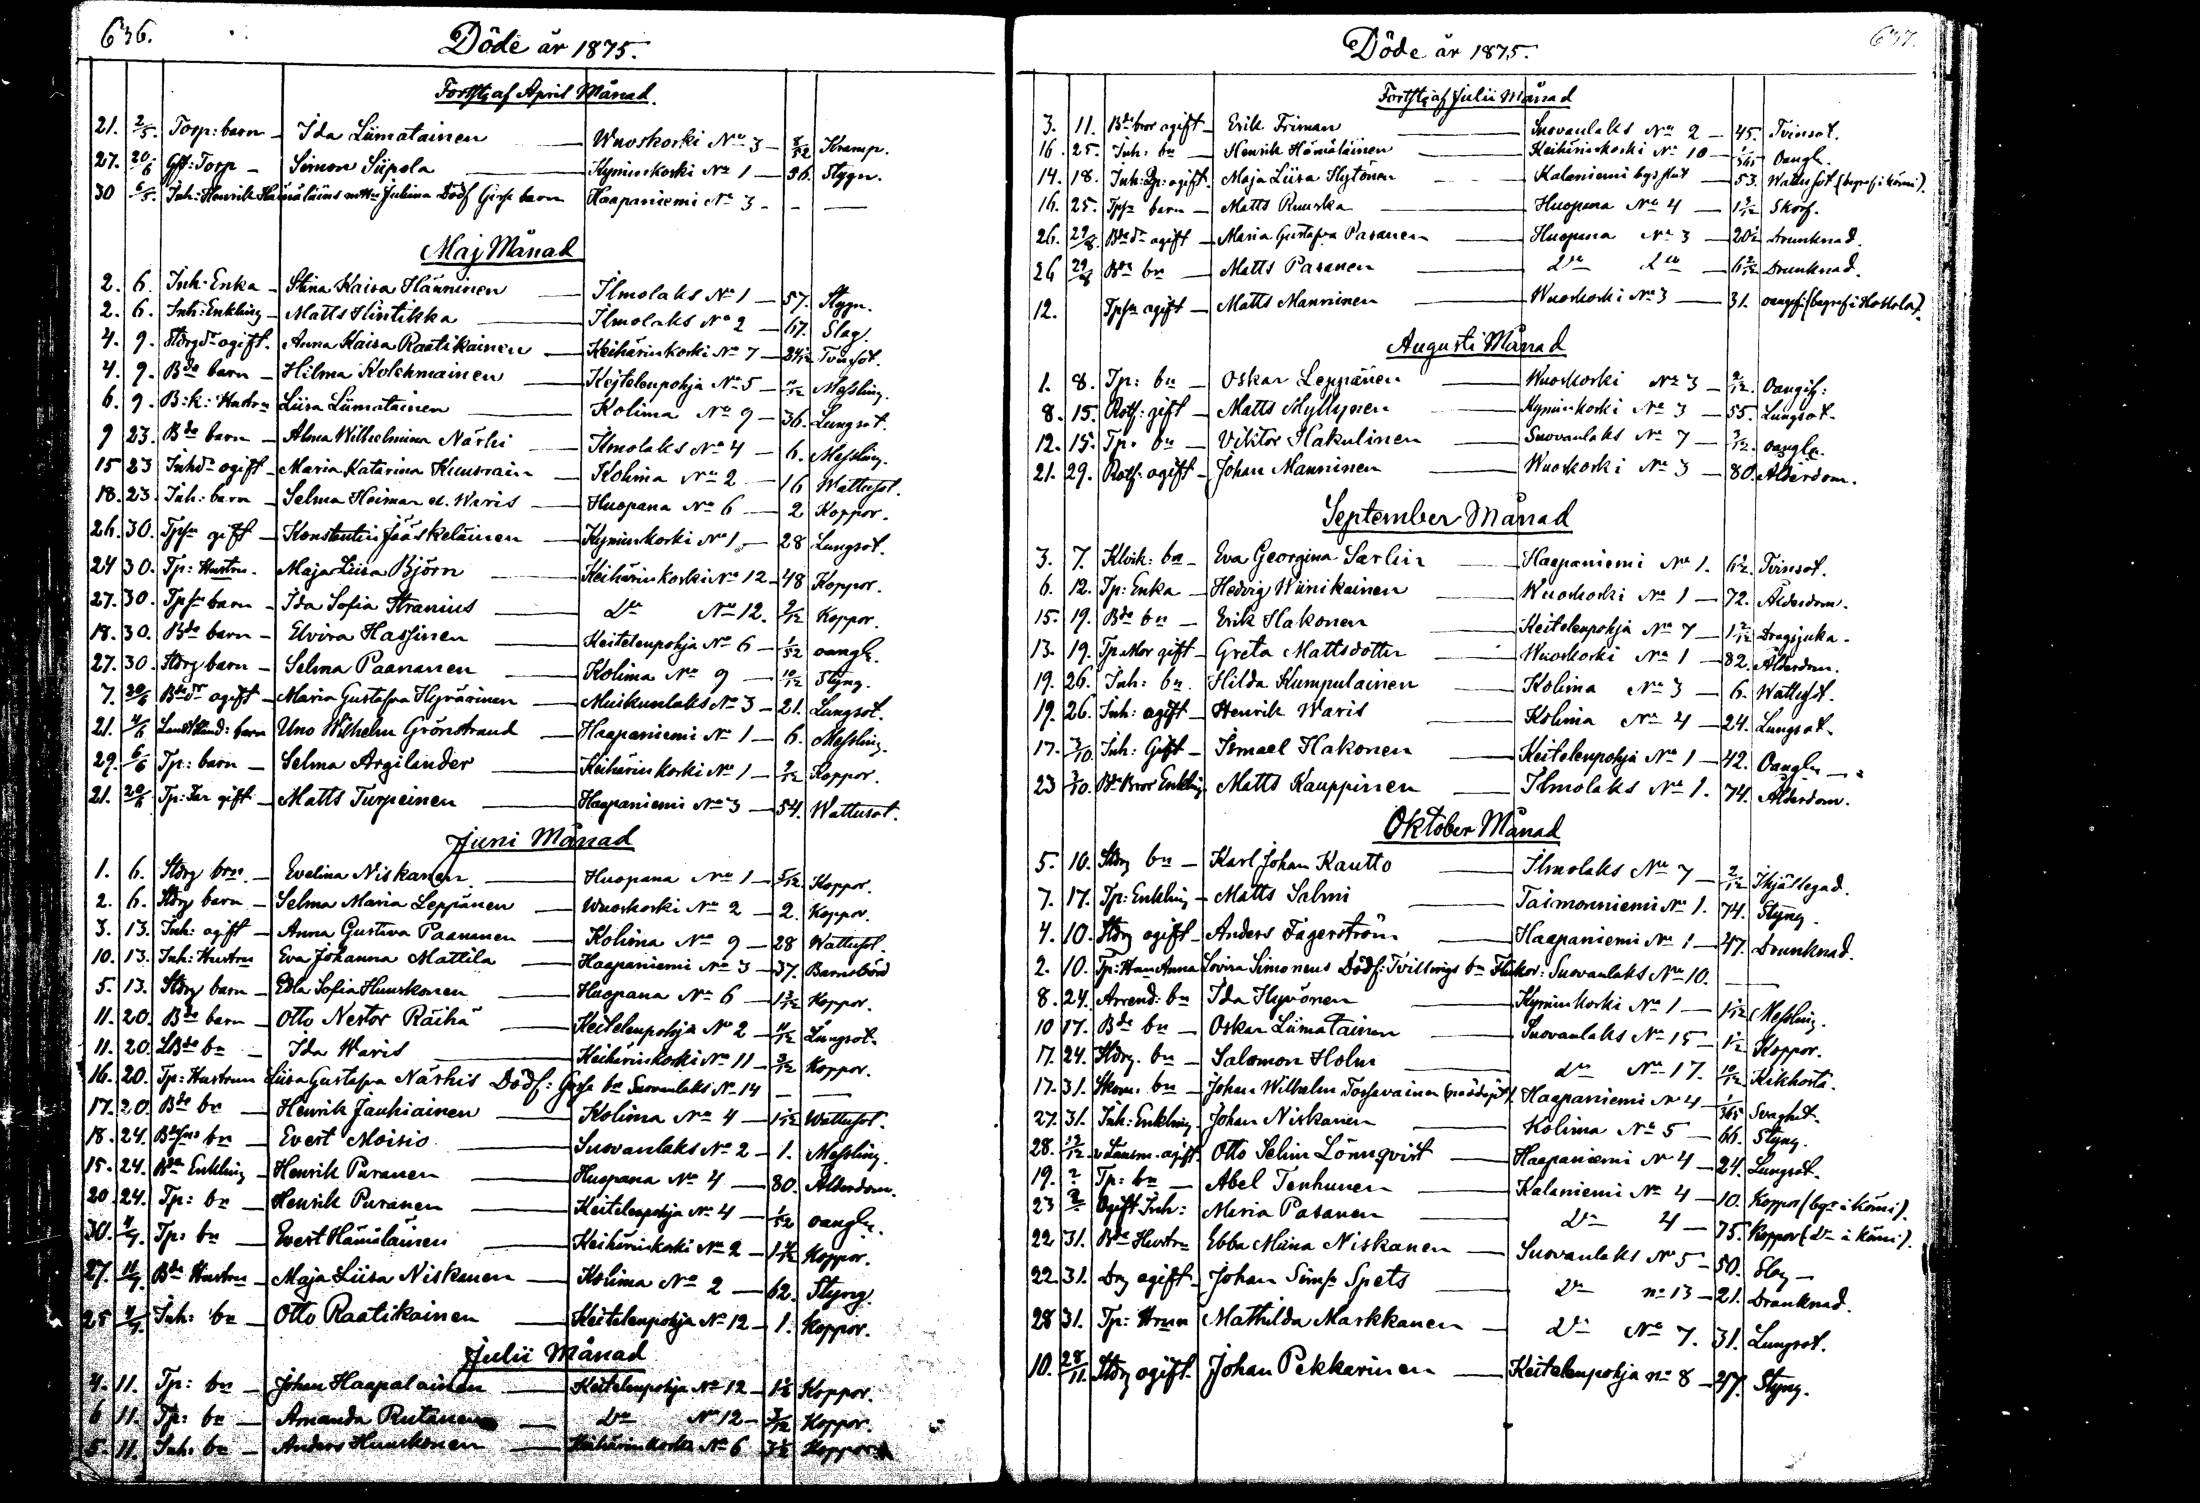 636.
Döde år 1875.
Fortstg af April Månad.
21. 2/5. Torp: barn - Ida Liimatainen - Wuoskoski No 3 - 8/52 Kramp.
27. 20/6 Torp - Simon Siipola - Kyminkoski No 1 - 36. Stygn.
30 6/5. Inh: Henrik Hämäläins Juliina Dödf Girße barn Haapaniemi No 3 - -
Maj Månad
2. 6. Inh: Enka - Stina Kaisa Hänninen - Ilmolaks No 1 - 57. Stygn.
2. 6. Inh: Enkling - Matts Hintikka - Ilmolaks No 2 - 67. Slag.
4. 9. Stdrg dr ogift. Anna Kaisa Raatikainen - Keihärinkoski No 7 - Tvinsot.
4. 9. Bde barn - Hilma Kolehmainen - Keitelenpohja No 5 - 11/12 Meßling.
6. 9. B: k: Hustru Liisa Liimatainen - Kolima No 9 - 36. Lungsot.
9 23. Bde barn - Alma Wilhelmina Närhi - Ilmolaks No 4 - 6. Meßling.
15 23 Inhdr ogift - Maria Katarina Kuusrain - Kolima No 2 - 16 Wattusot.
18. 23. Inh: barn - Selma Heiman el. Waris - Huopana No 6 - 2 Koppor.
26. 30. Tpsn gift - Konstantin Jääskeläinen - Kyminkoski No 1. - 28 Lungsot.
24 30. Tp: Hustru. Maja Liisa Björn - Keihärinkoski No 12 - 48 Koppor.
27. 30. Tpsn barn - Ida Sofia Stranius - Do No 12. 2/12 Koppor.
18. 30. Bde barn - Elvira Haßinen - Keitelenpohja No 6 - 1/52 oangs.
27. 30. Stdrg barn - Selma Paananen - Kolima No 9 - 10/12 Styng.
7. 20/6 Bdedr ogift - Maria Gustafva Hyvärinen - Muikunlaks No 3 - 21. Lungsot.
21. 4/6 barn Uno Wilhelm Grönstrand - Haapaniemi No 1 - 6. Meßling.
29. 6/6 Tp: barn - Selma Argilander - Keihärinkoski No 1 - 2/12 Koppor.
21. 20/6 Tp: Far gift - Matts Turpeinen - Haapaniemi No 3 - 54. Wattusot.
Juni Månad
1. 6. Stdrg brn. - Evelina Niskanen - Huopana No 1 - 5/12. Koppor.
2. 6. Stdrg barn - Selma Maria Leppänen - Wuoskoski No 2 - 2. Koppor.
3. 13. Inh: ogift - Anna Gustiva Paananen - Kolima No 9 - 28 Wattusot.
10. 13. Inh: Hustru Eva Johanna Mattila - Haapaniemi No 3 - 37. Barnsbörd
5. 13. Stdrg barn - Edla Sofia Huuskonen - Huopana No 6 - 1 3/12 Koppor.
11. 20. Bde barn - Otto Nestor Räihä - Keitelenpohja No 2 - 11/12 Lungsot.
11. 20 LBde bn - Ida Waris - Keihärinkoski No 11 - 3/12 Koppor.
16. 20. Tp: Hustrun Liisa Gustafva Närhis Dödf: Goße bn Suovanlaks No 14 - -
17. 20. Bde bn - Henrik Jauhiainen - Kolima No 4 - 1 1/12 Wattusot.
18. 24. bn - Evert Moisio - Suovanlaks No 2 - 1. Meßling.
15. 24. Bde Enkling - Henrik Puranen - Huopana No 4 - 80. Ålderdom.
20. 24. Tp: bn - Henrik Puranen - Keitelenpohja No 4 - 1/52 oangs.
30. 4/7. Tp: bn - Evert Hämäläinen - Keihärinkoski No 2 - 1 4/12 Koppor.
27. 11/7. Bde Hustru - Maja Liisa Niskanen - Kolima No 2 - 62. Styng.
25 4/7. Inh: bn - Otto Raatikainen - Keitelenpohja No 12 - 1. Koppor.
Julii Månad
4. 11. Tp: bn - Johan Haapalainen - Keitelenpohja No 12 - 1½ Koppor.
6 11. Tp: bn - Amanda Rutanen - Do No 12 - 3/12 Koppor.
5. 11. Inh: bn - Anders Huuskonen - Keihärinkoski No 6 3½ Koppor.
637.
Döde år 1875.
Fortstg af Julii Månad
3. 11. Bde bror ogift - Erik Friman - Suovanlaks No 2 - 45. Tvinsot.
16. 25. Inh: bn - Henrik Hämäläinen - Keihärinkoski No 10 - 1/365 Oangs.
14. 18. ogift - Maja Liisa Hytönen - Kalaniemi - 53. Wattusot (begraf i Kömi).
16. 25. Tpsn barn - Matts Ruuska - Huopana No 4 - Skorf.
26. 29/8. Bdedr ogift - Maria Gustafva Pasanen - Huopana No 3 - 20½ Drunknad.
26 29/8 Bde bn - Matts Pasanen - Do Do - 6 2/12 Drunknad.
12. Tpsn ogift - Matts Manninen - Wuoskoski No 3 - 31. oangif: (begraf i Hokkola).
Augusti Månad
1. 8. Tp: bn - Oskar Leppänen - Wuoskoski No 3 - 2/12. Oangif:
8. 15. Rotf: gift - Matts Myllynen - Kyminkoski No 3 - 55. Lungsot.
12. 15. Tp: bn - Viktor Hakulinen - Suovanlaks No 7 - 3/12. oangs.
21. 29. Rotf: ogift - Johan Manninen - Wuoskoski No 3 - 80. Ålderdom.
September Månad
3. 7. Klrik: bn - Eva Georgina Sarlin - Haapaniemi No 1. 6½. Tvinsot.
6. 12. Tp: Enka - Hedvig Wiinikainen - Wuoskoski No 1 - 72. Ålderdom.
15. 19. Bde bn - Erik Hakonen - Keitelenpohja No 7 - 1 2/12 Dragsjuka.
13. 19. Tp. Mor gift - Greta Mattsdotter - Wuoskoski No 1 - 82. Ålderdom.
19. 26. Inh: bn. Hilda Kumpulainen - Kolima No 3 - 6. Wattusot.
19. 26. Inh: ogift - Henrik Waris - Kolima No 4 - 24. Lungsot.
17. 3/10. Inh: Gift - Ismael Hakonen - Keitelenpohja No 1 - 42. Oangs
23 3/10. Bde Bror Enkling. Matts Kauppinen - Ilmolaks No 1. 74. Ålderdom.
Oktober Månad
5. 10. Stdrg bn - Karl Johan Kautto - Ilmolaks No 7 - 2/12 Ihjällegad.
7. 17. Tp: Enkling - Matts Salmi - Taimoniemi No 1. 74. Styng.
4. 10. Stdrg ogift - Anders Fagerström - Haapaniemi No 1 - 47. Drunknad.
2. 10. Tp: Hun Anna Lovisa Simoneus Dödf: Tvillings bn Flickor: Suovanlaks No 10. -
8. 24. Arrend: bn Ida Hyvönen - Kyminkoski No 1 - 1 1/12 Meßling.
10 17. Bde bn - Oskar Liimatainen - Suovanlaks No 15 - 1½ Koppor.
17. 24. Stdrg. bn - Salomon Holm - do No 17. 10/12 Kikhosta.
17. 31. Skom. bn - Johan Wilhelm Toßavainen (nöddöpt). Haapaniemi No 4 - 1/365 Svaghet.
27. 31. Inh: Enkling. Johan Niskanen - Kolima No 5 - 66. Styng.
28. 12/12 v Länsm. ogift. Otto Selim Lönnqvist - Haapaniemi No 4 - 24. Lungsot.
19. ? Tp: bn - Abel Tenhunen - Kalaniemi No 4 - 10. Koppor (bgr i Kömi).
23 ? Ogift Inh: Maria Pasanen - Do 4 - 75. Koppor (Do i Kömi).
22 31. Bde Hustru Ebba Miina Niskanen - Suovanlaks No 5 - 50. Slag -
22. 31. Drg ogift - Johan Simsn Spets - Do no 13 - 21. Drunknad.
28 31. Tp: Hrun Mathilda Markkanen - Do No 7. 31. Lungsot.
10. 28/11. Stdrg ogift. Johan Pekkarinen - Keitelenpohja no 8 - 37. Styng.